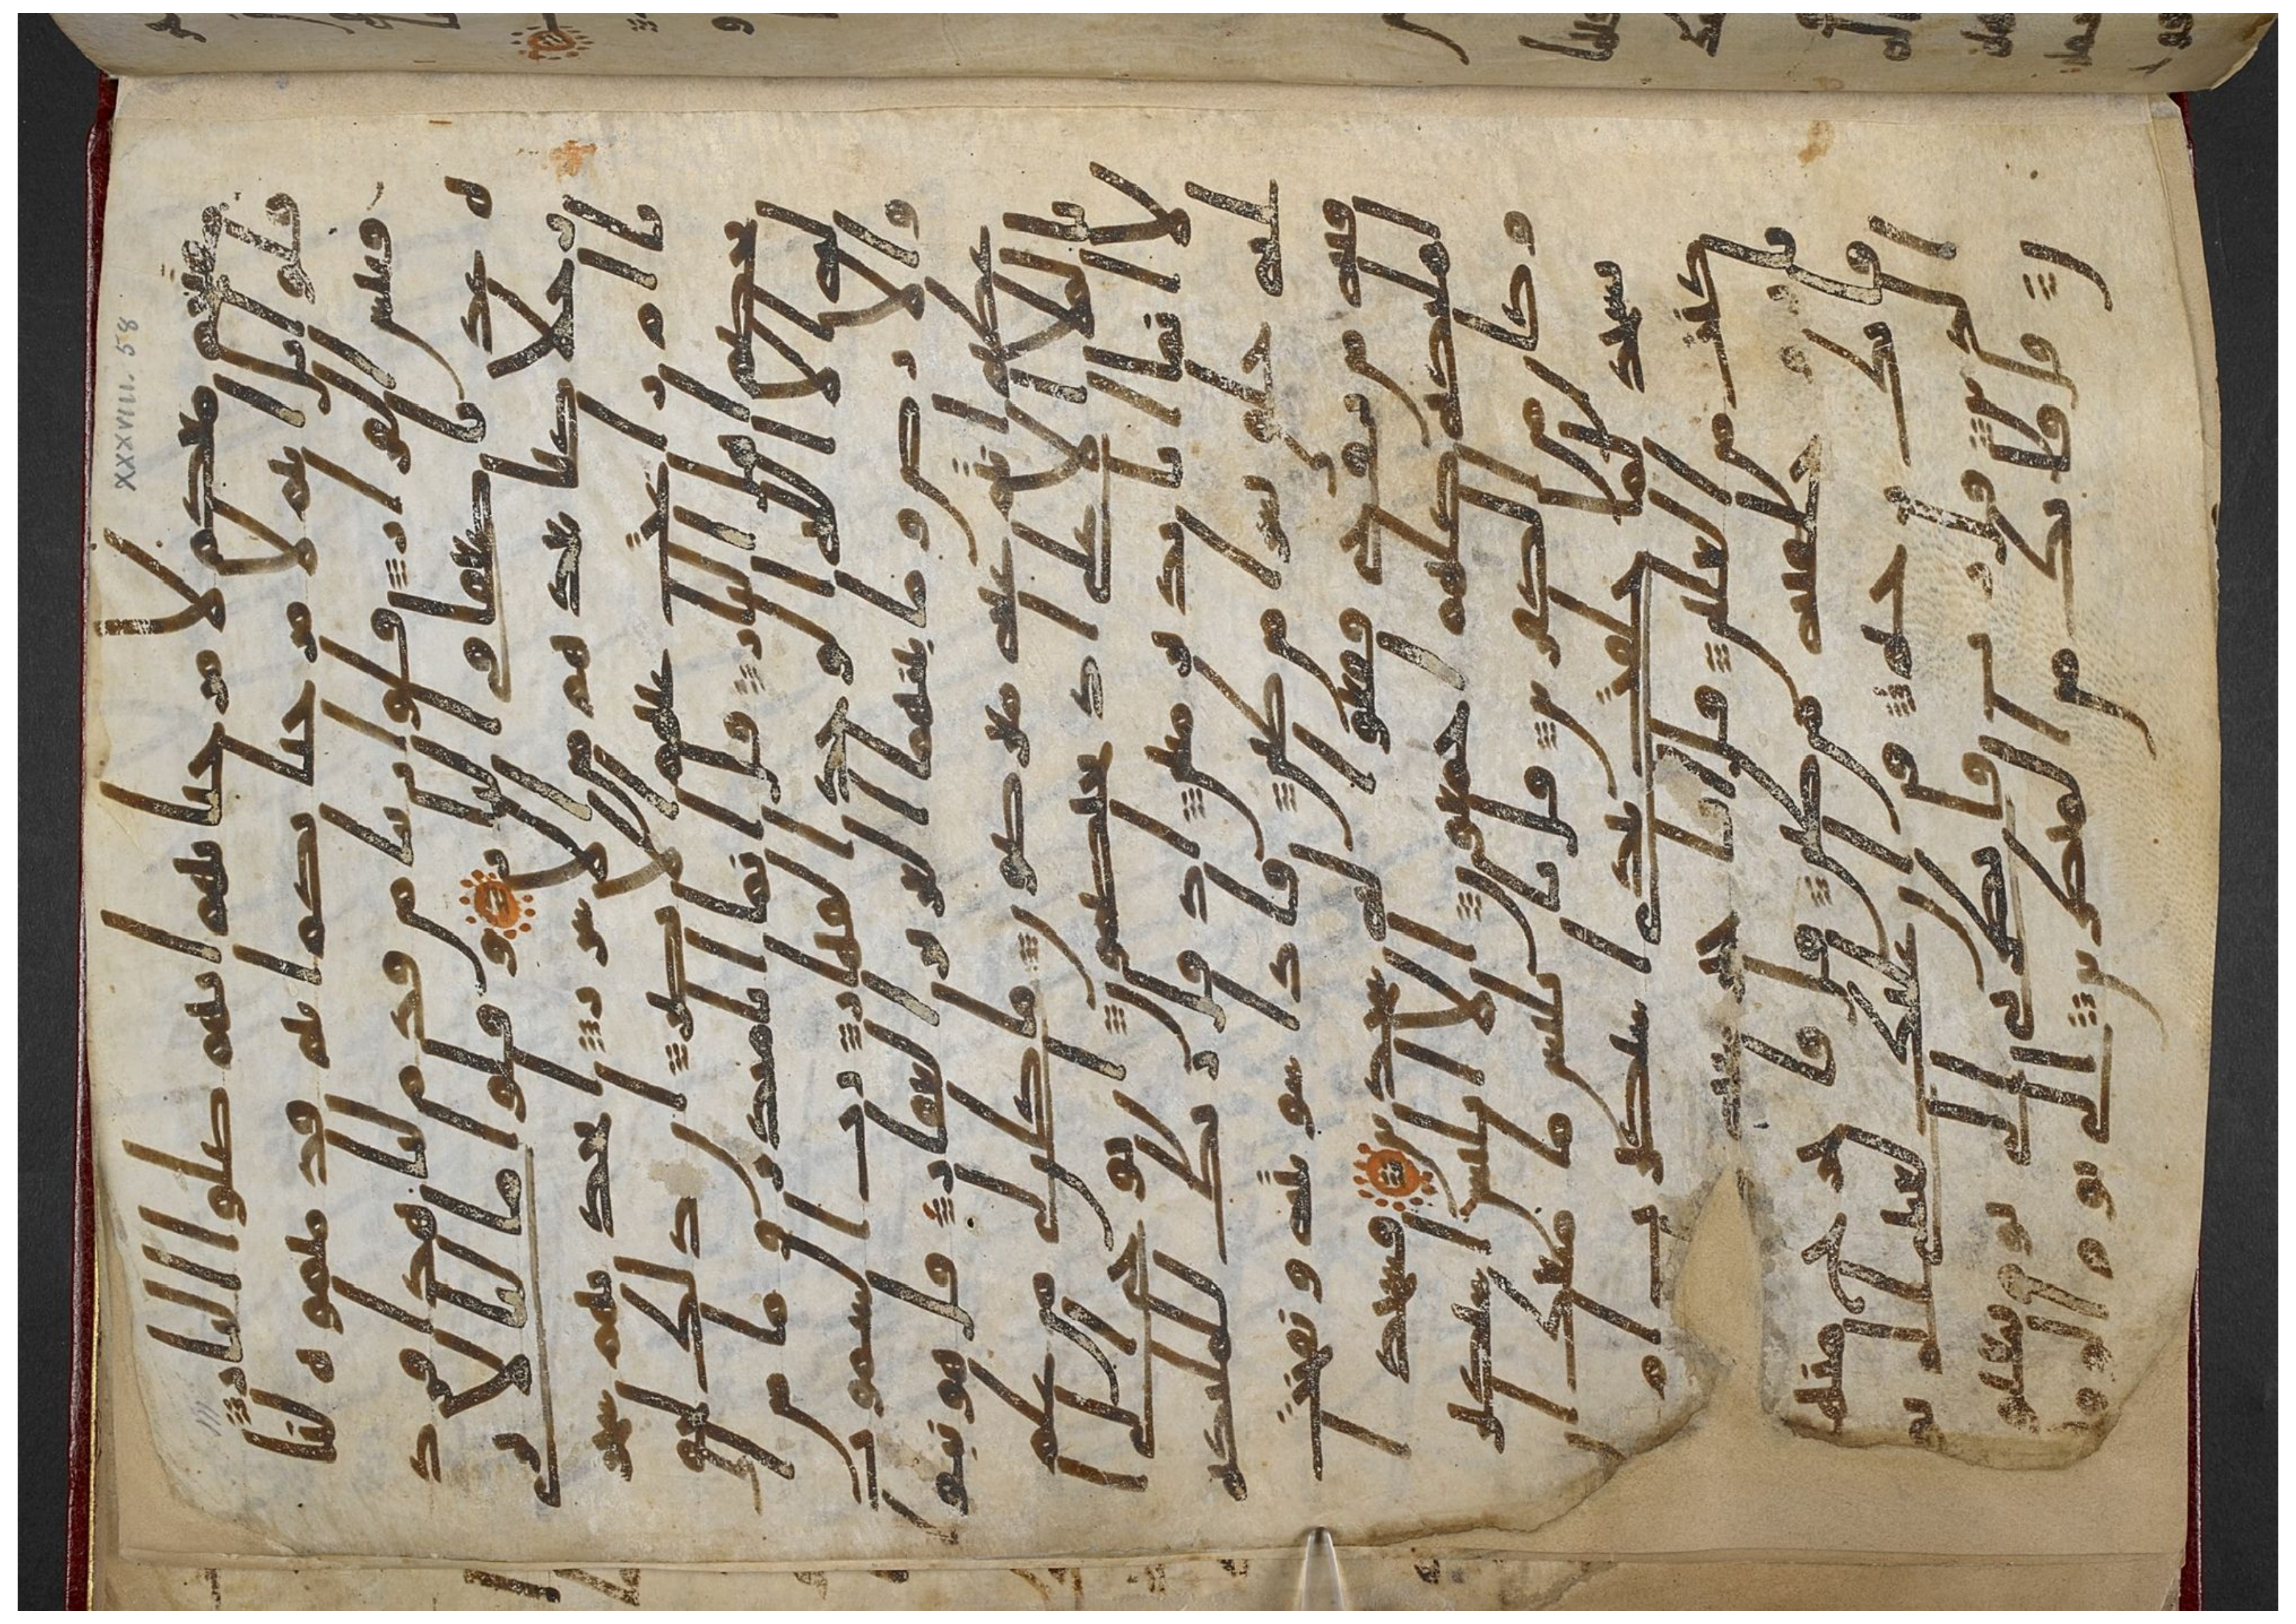 XXXVIII. 58
مقتحم معكم لا مرحبا بهم انهم صلوا النار
قالوا بل انتم لا مرحبا بكم انتم قدمتموه لنا
فبئس القرار قالوا ربنا من قدم لنا هذا فزد
ه عذابا ضعفا في النار وقالوا ما لنا لا نرى
رجلا كنا نعدهم من الاشرار اتخذنهم سخر
يا ام زاغت عنهم الابصر ان ذلك لحق
تخصم اهل النار قل انما انا منذر وما من
اله الا الله الوحد القهار رب السموت
والارض وما بينهما العزيز الغفار قل هو نبوا
عظيم انتم عنه معرضون ما كان لي من علم
بالملا الاعلى اذ يختصمون ان يوحى الي
الا انما انا نذير مبين اذ قال ربك للملئكة
اني خلق بشرا من طين فاذا سويته ونفخت
فيه من روحي فقعوا له سجدين فسجد ا
لملئكة كلهم اجمعون الا ابليس استكبر
وكان من الكفرين قال يابليس ما منعك ا
تسجد لما خلقت بيدي استكبرت ام
كنت من العلين قال انا خير منه
نار وخلقته من طين قال فاخرج منها
فانك رجيم وان عليك لعنتي الى يو
م الدين قال رب فانظرني الى يوم يبعثو
ن قال فانك من المنظرين الى يوم الوقت